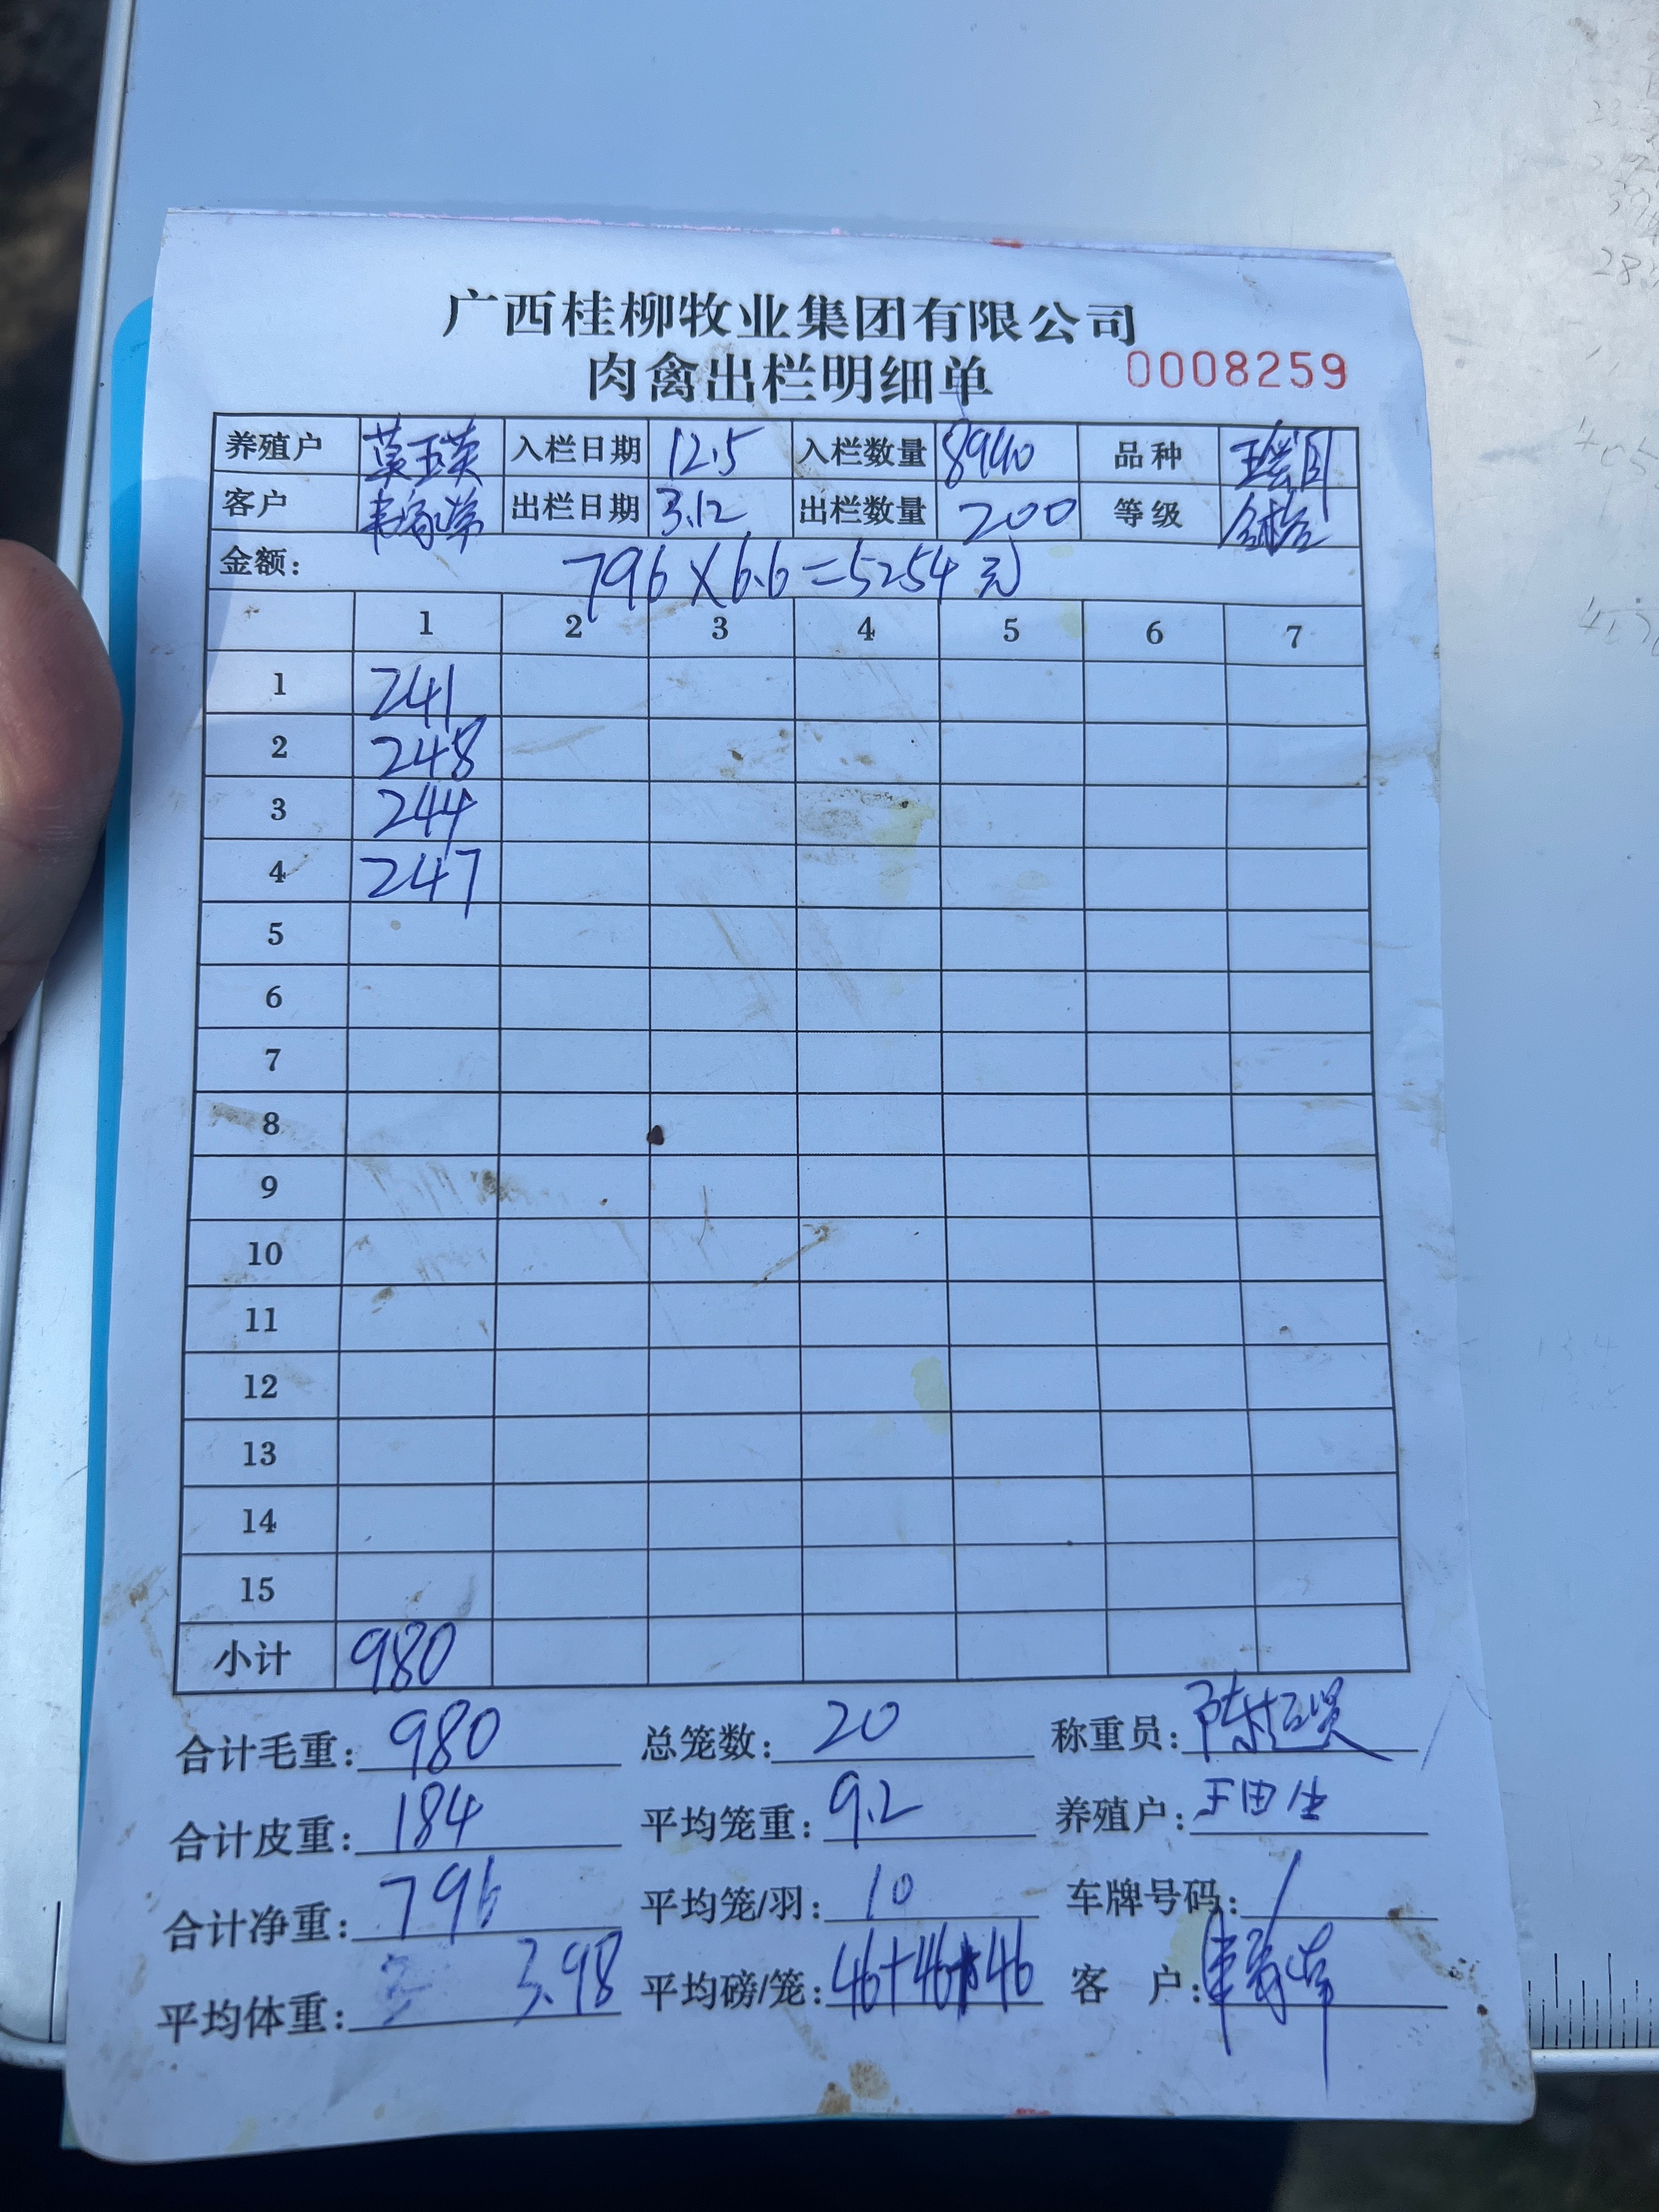 广西桂柳牧业集团有限公司
肉禽出栏明细单 0008259
养殖户 莫玉英 入栏日期 12.5 入栏数量 8940 品种
客户 韦家常 出栏日期 3.12 出栏数量 200 等级
金额: 796×6.6=5254元
1 2 3 4 5 6 7
1 241
2 248
3 244
4 247
5
6
7
8
9
10
11
12
13
14
15
小计 980
合计毛重: 980 总笼数: 20 称重员:
合计皮重: 184 平均笼重: 9.2 养殖户: 王田生
合计净重: 796 平均笼/羽: 10 车牌号码: /
平均体重: 3.98 平均磅/笼: 46+46+46 客 户: